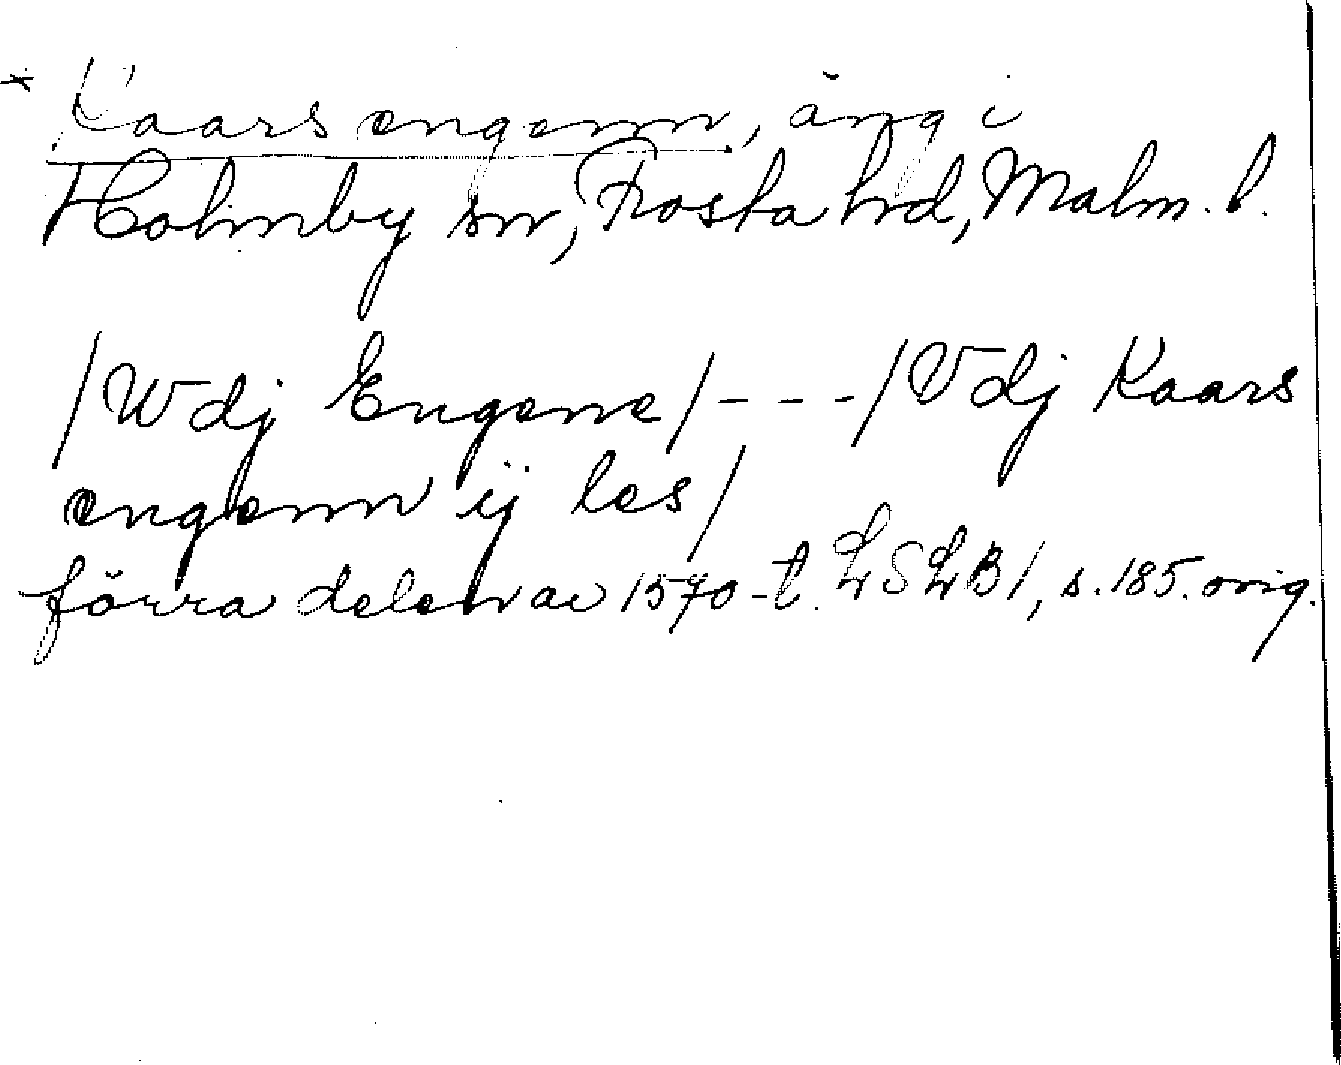 x Kaars engenn, äng i
Holmby sn, Frosta hd, Malm. l.
/Wdj Engene/---/Vdj Kaars
engenn ij les/
förra delen av 1570-t. LSLB1, s. 185. orig.